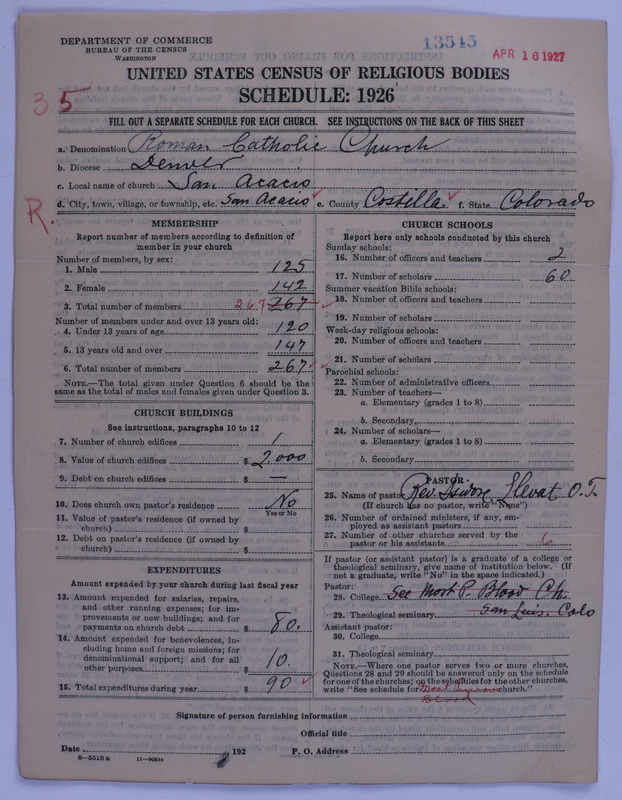 DEPARTMENT OF COMMERCE
BUREAU OF THE CENSUS
WASHINGTON
13545
APR 16 1927
UNITED STATES CENSUS OF RELIGIOUS BODIES
SCHEDULE: 1926
35
FILL OUT A SEPARATE SCHEDULE FOR EACH CHURCH. SEE INSTRUCTIONS ON THE BACK OF THIS SHEET
a. Denomination Roman Catholic Church
b. Diocese Denver
c. Local name of church San Acacio
d. City, town, village, or township, etc. San Acacio e. County Costilla f. State Colorado
R.
MEMBERSHIP
Report number of members according to definition of
member in your church
Number of members, by sex:
1. Male 125
2. Female 142
3. Total number of members 267 267
Number of members under and over 13 years old:
4. Under 13 years of age 120
5. 13 years old and over 147
6. Total number of members 267
NOTE.—The total given under Question 6 should be
same as the total of males and females given under Question 3.
CHURCH BUILDINGS
See instructions, paragraphs 10 to 12
7. Number of church edifices 1
8. Value of church edifices $ 2,000
9. Debt on church edifices $ —
10. Does church own pastor's residence No
Yes or No
11. Value of pastor's residence (if owned by
church) $
12. Debt on pastor's residence (if owned by
church) $
EXPENDITURES
Amount expended by your church during last fiscal year
13. Amount expended for salaries, repairs,
and other running expenses; for im-
provements or new buildings; and for
payments on church debt $ 80.
14. Amount expended for benevolences, in-
cluding home and foreign missions; for
denominational support; and for all
other purposes $ 10.
15. Total expenditures during year $ 90
CHURCH SCHOOLS
Report here only schools conducted by this church
Sunday schools:
16. Number of officers and teachers 2
17. Number of scholars 60
Summer vacation Bible schools:
18. Number of officers and teachers
19. Number of scholars
Week-day religious schools:
20. Number of officers and teachers
21. Number of scholars
Parochial schools:
22. Number of administrative officers
23. Number of teachers—
a. Elementary (grades 1 to 8)
b. Secondary
24. Number of scholars—
a. Elementary (grades 1 to 8)
b. Secondary
PASTOR
25. Name of pastor Rev.
(If church has no pastor, write "None")
26. Number of ordained ministers, if any, em-
ployed as assistant pastors
27. Number of other churches served by the
pastor or his assistants 6
If pastor (or assistant pastor) is a graduate of a college or
theological seminary, give name of institution below. (If
not a graduate, write "No" in the space indicated.)
Pastor:
28. College See Most P. Blood Ch.
29. Theological seminary San Luis. Colo
Assistant pastor:
30. College
31. Theological seminary
NOTE.—Where one pastor serves two or more churches,
Questions 28 and 29 should be answered only on the schedule
for one of the churches; on the schedules for the other churches,
write "See schedule for Most Precious church."
Blood
Signature of person furnishing information
Official title
Date , 192 P. O. Address
8-5518a 11-9054a